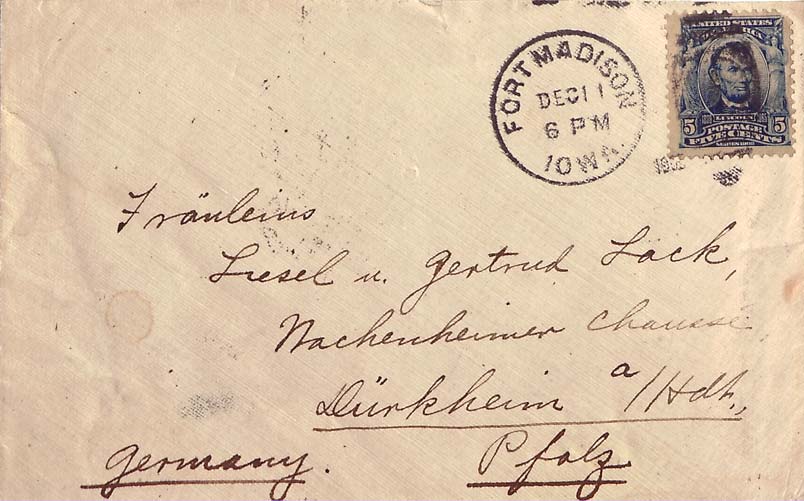 FORT MADISON
DEC 11
6 PM
IOWA.
UNITED STATES
OF AMERICA
LINCOLN
5 5
POSTAGE
FIVE CENTS
Fräuleins
Liesel u. Gertrud Lock,
Wachenheimer Chaussé
Dürkheim a/Hdt.,
Germany. Pfalz